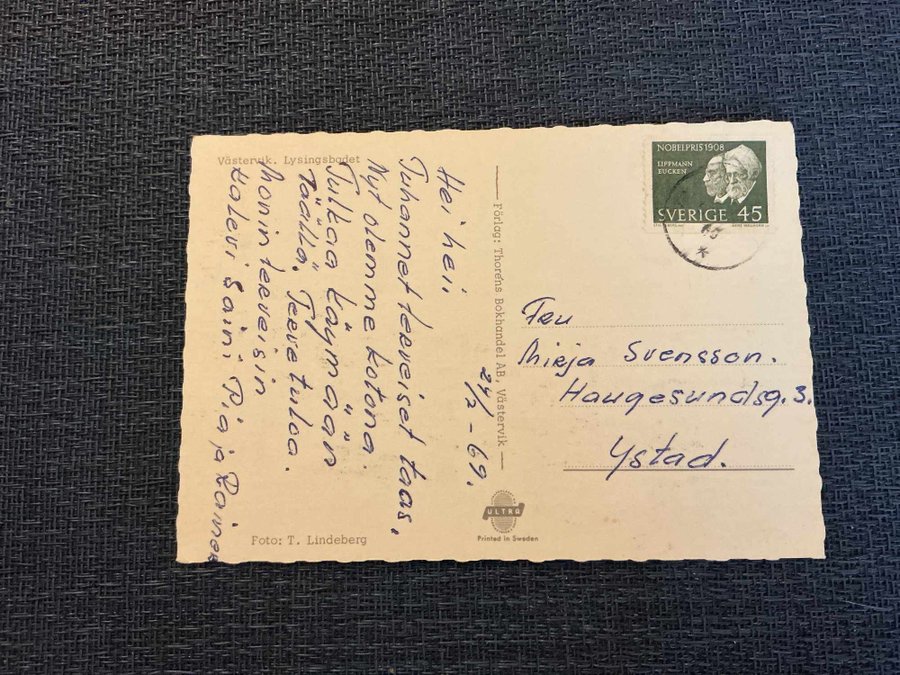 Västervik. Lysingsbadet
24/2 - 69.
Hei hei!
Tuhannet terveiset taas.
Nyt olemme kotona.
Tulkaa käymään
täällä. Tervetuloa.
Monin terveisin
Kalevi Saini Pia ja Raimo
Foto: T. Lindeberg
Förlag: Thoréns Bokhandel AB, Västervik
ULTRA
Printed in Sweden
NOBELPRIS 1908
LIPPMANN
EUCKEN
SVERIGE 45
Fru
Mirja Svensson.
Haugesundsg. 3.
Ystad.